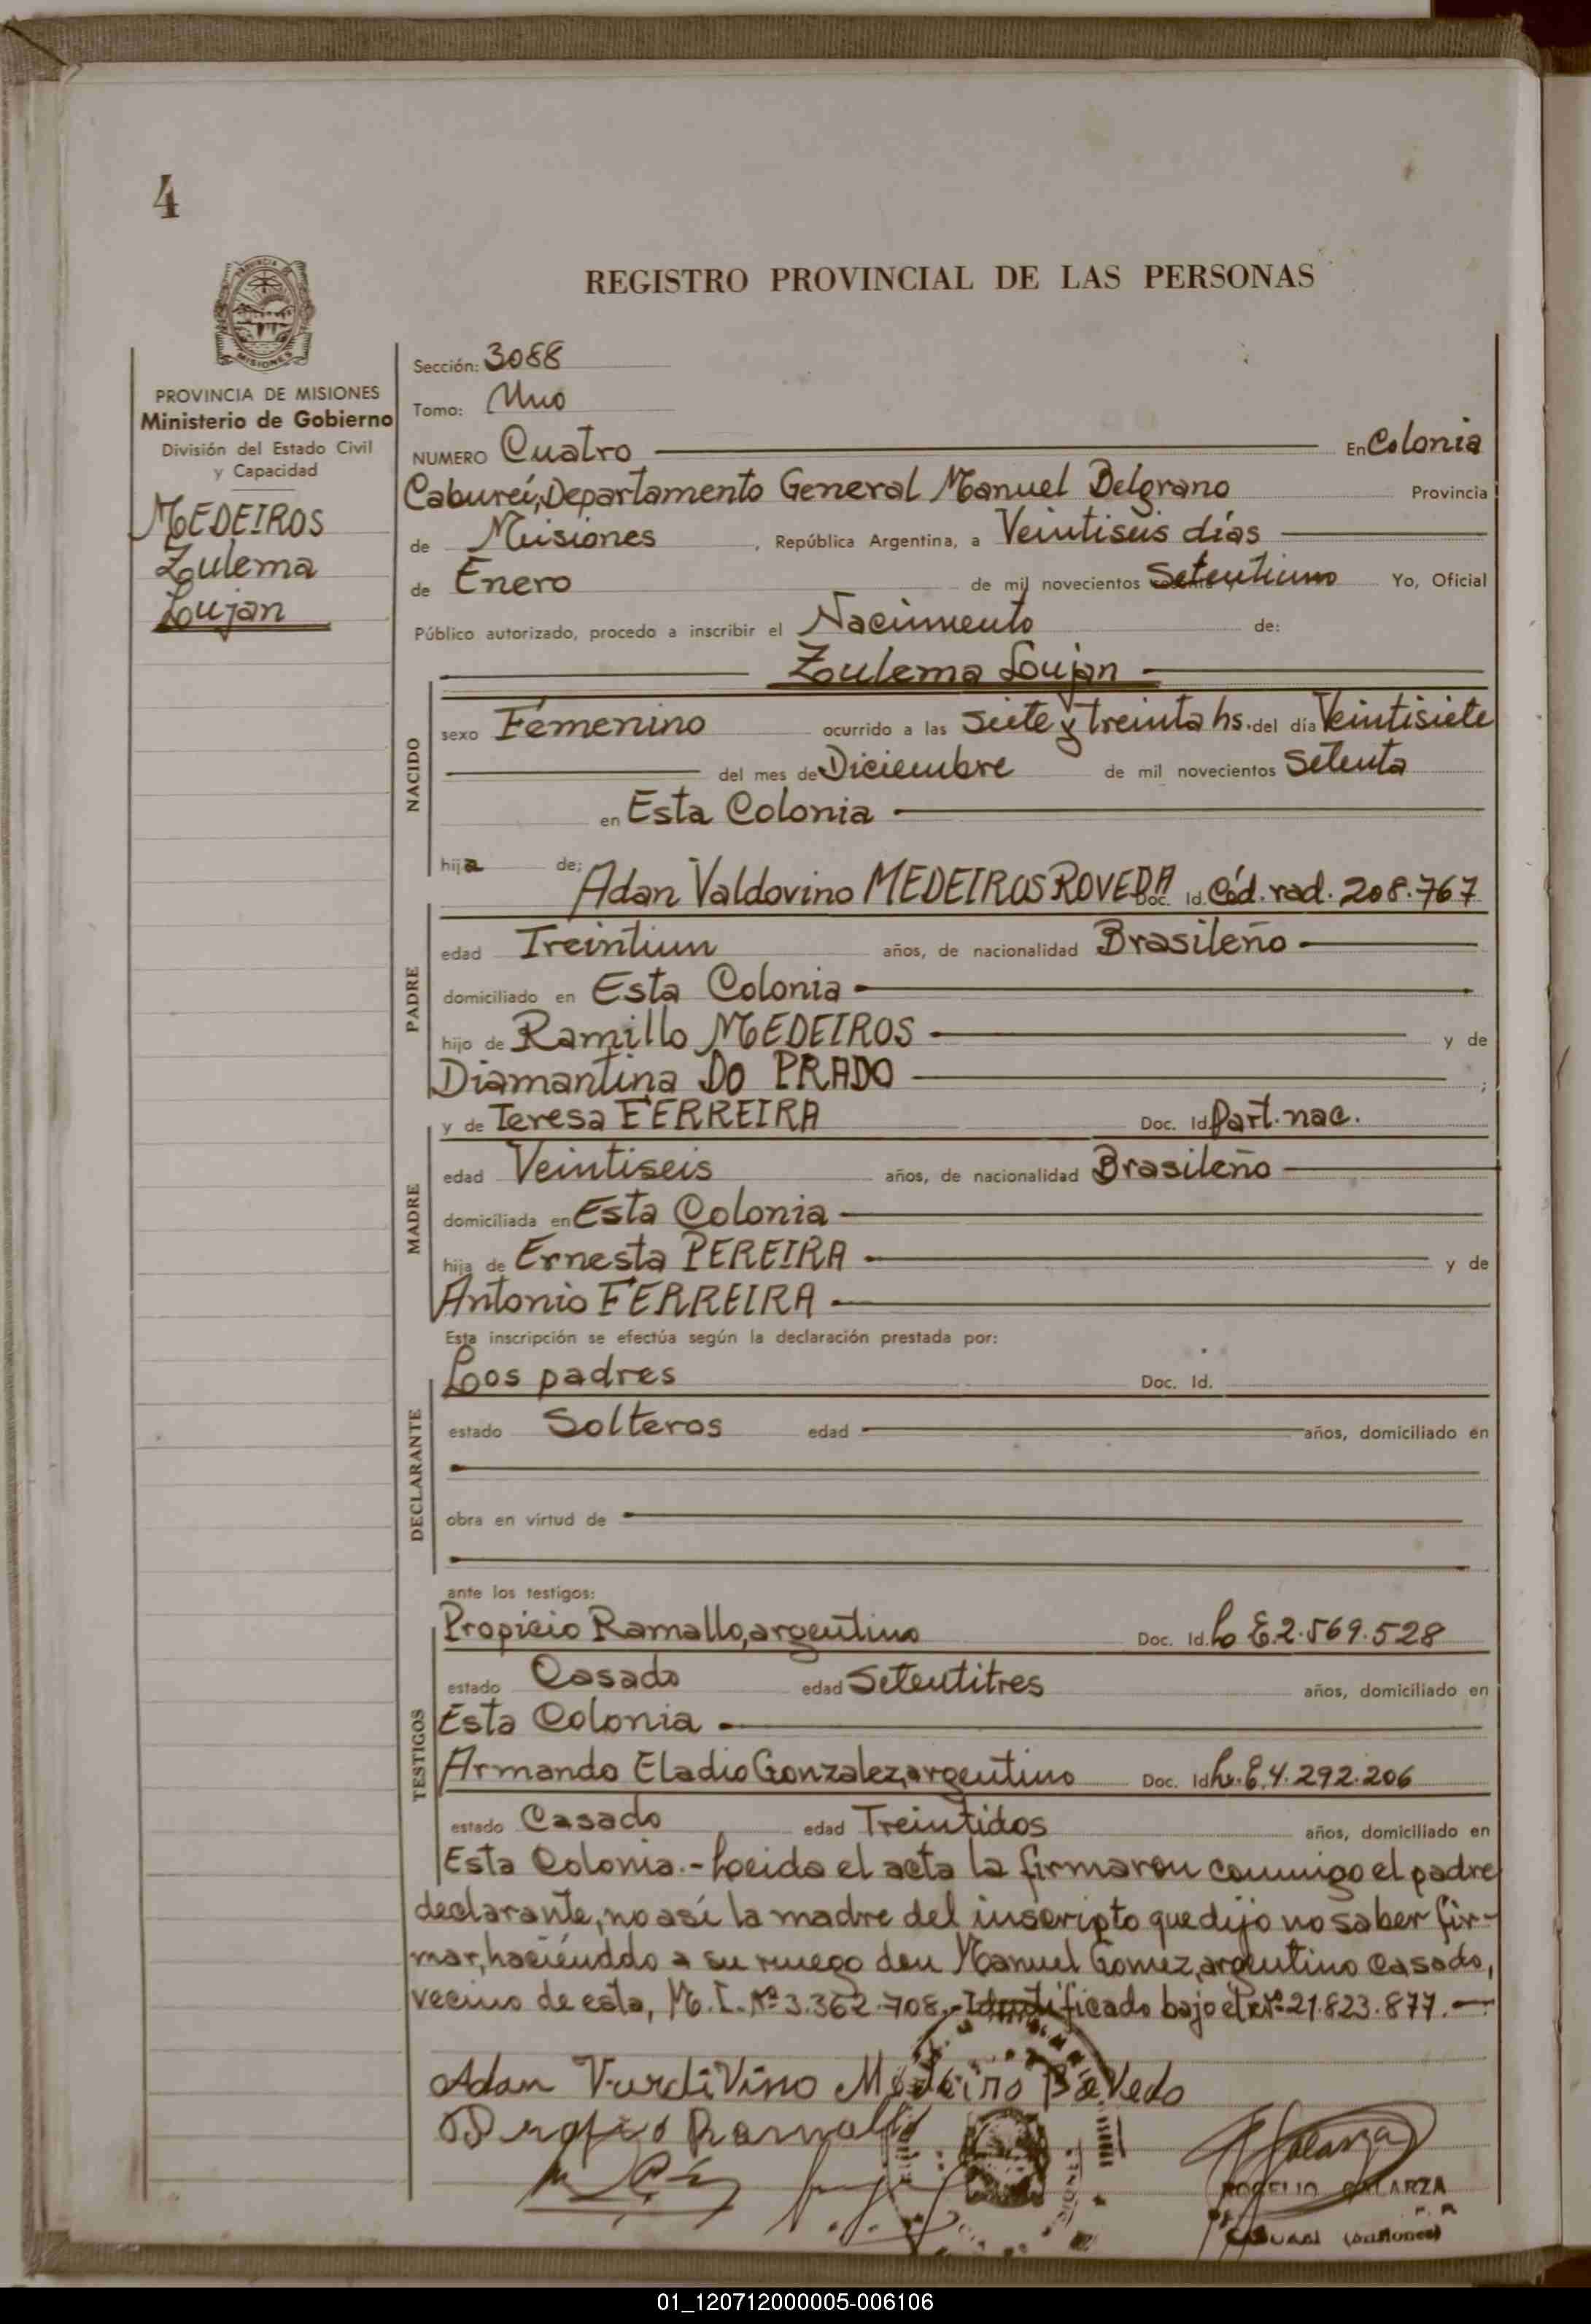 4
REGISTRO PROVINCIAL DE LAS PERSONAS
PROVINCIA DE MISIONES
Ministerio de Gobierno
División del Estado Civil
y Capacidad
MEDEIROS
Zulema
Lujan
Sección: 3088
Tomo: Uno
NUMERO Cuatro En Colonia
Cabureí, Departamento General Manuel Belgrano Provincia
de Misiones , República Argentina, a Veintiseis días
de Enero de mil novecientos Setentiuno Yo, Oficial
Público autorizado, procedo a inscribir el Nacimiento de:
Zulema Lujan
NACIDO
sexo Femenino ocurrido a las siete y treinta hs. del día Veintisiete
del mes de Diciembre de mil novecientos Setenta
en Esta Colonia
hija de:
PADRE
Adan Valdovino MEDEIROS ROVEDA Doc. Id. Céd. rad. 208.767
edad Treintiun años, de nacionalidad Brasileño
domiciliado en Esta Colonia
hijo de Ramillo MEDEIROS y de
Diamantina DO PRADO ;
MADRE
y de Teresa FERREIRA Doc. Id Part. nac.
edad Veintiseis años, de nacionalidad Brasileño
domiciliada en Esta Colonia
hija de Ernesta PEREIRA y de
Antonio FERREIRA
Esta inscripción se efectúa según la declaración prestada por:
DECLARANTE
Los padres Doc. Id.
estado Solteros edad años, domiciliado en
obra en virtud de
ante los testigos:
TESTIGOS
Propicio Ramallo, argentino Doc. Id. L E. 2.569.528
estado Casado edad Setentitres años, domiciliado en
Esta Colonia
Armando Eladio Gonzalez, argentino Doc. Id L. E. 4.292.206
estado Casado edad Treintidos años, domiciliado en
Esta Colonia.- Leida el acta la firmaron conmigo el padre
declarante, no así la madre del inscripto que dijo no saber fir-
mar, haciénddo a su ruego don Manuel Gomez, argentino casado,
vecino de esta, M. I. Nº 3.362.708.- Identificado bajo el Nº 21.823.877.
Adan Medeiro
Ramallo
Galarza
ROGELIO GALARZA
(Misiones)
01_120712000005-006106